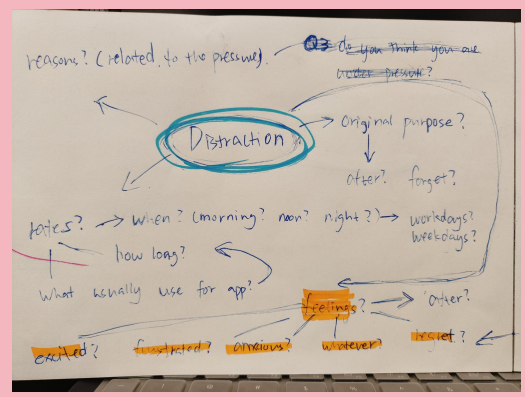 reasons? (related to the pressure).
Q3 do you think you are
under pressure?
Distraction
original purpose?
after? forget?
when? (morning? noon? night?)
workdays?
weekdays?
how long?
what usually use for app?
feelings?
after?
excited?
frustrated?
anxious?
whatever?
regret?